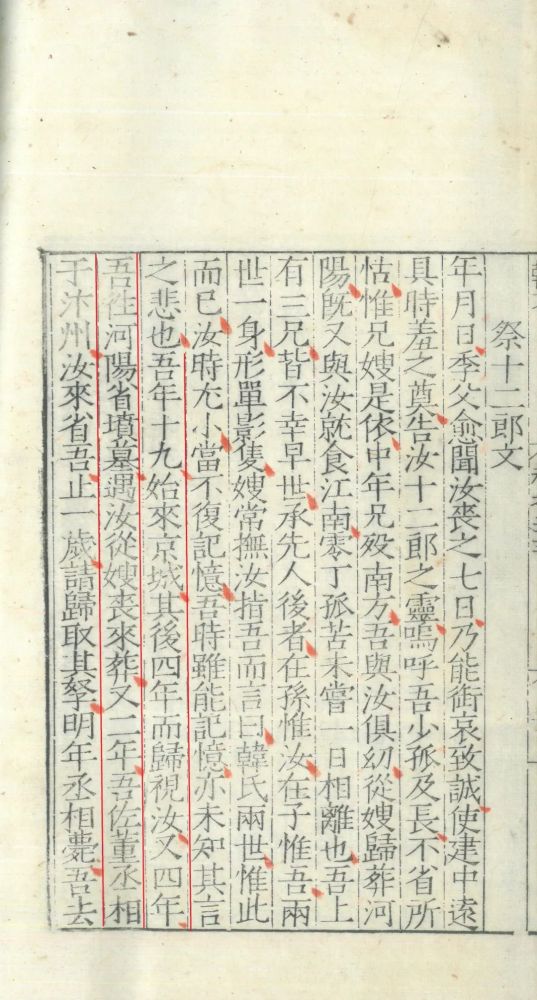 祭十二郎文
年月日季父愈聞汝喪之七日乃能銜哀致誠使建中遠
具時羞之奠告汝十二郎之靈嗚呼吾少孤及長不省所
怙惟兄嫂是依中年兄歿南方吾與汝俱幼從嫂歸葬河
陽既又與汝就食江南零丁孤苦未嘗一日相離也吾上
有三兄皆不幸早世承先人後者在孫惟汝在子惟吾兩
世一身形單影隻嫂常撫汝指吾而言曰韓氏兩世惟此
而已汝時尤小當不復記憶吾時雖能記憶亦未知其言
之悲也吾年十九始來京城其後四年而歸視汝又四年
吾往河陽省墳墓遇汝從嫂喪來葬又二年吾佐董丞相
于汴州汝來省吾止一歲請歸取其孥明年丞相薨吾去